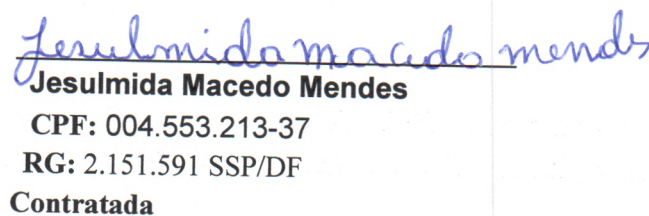 Jesulmida Macedo Mendes
Jesulmida Macedo Mendes
CPF: 004.553.213-37
RG: 2.151.591 SSP/DF
Contratada